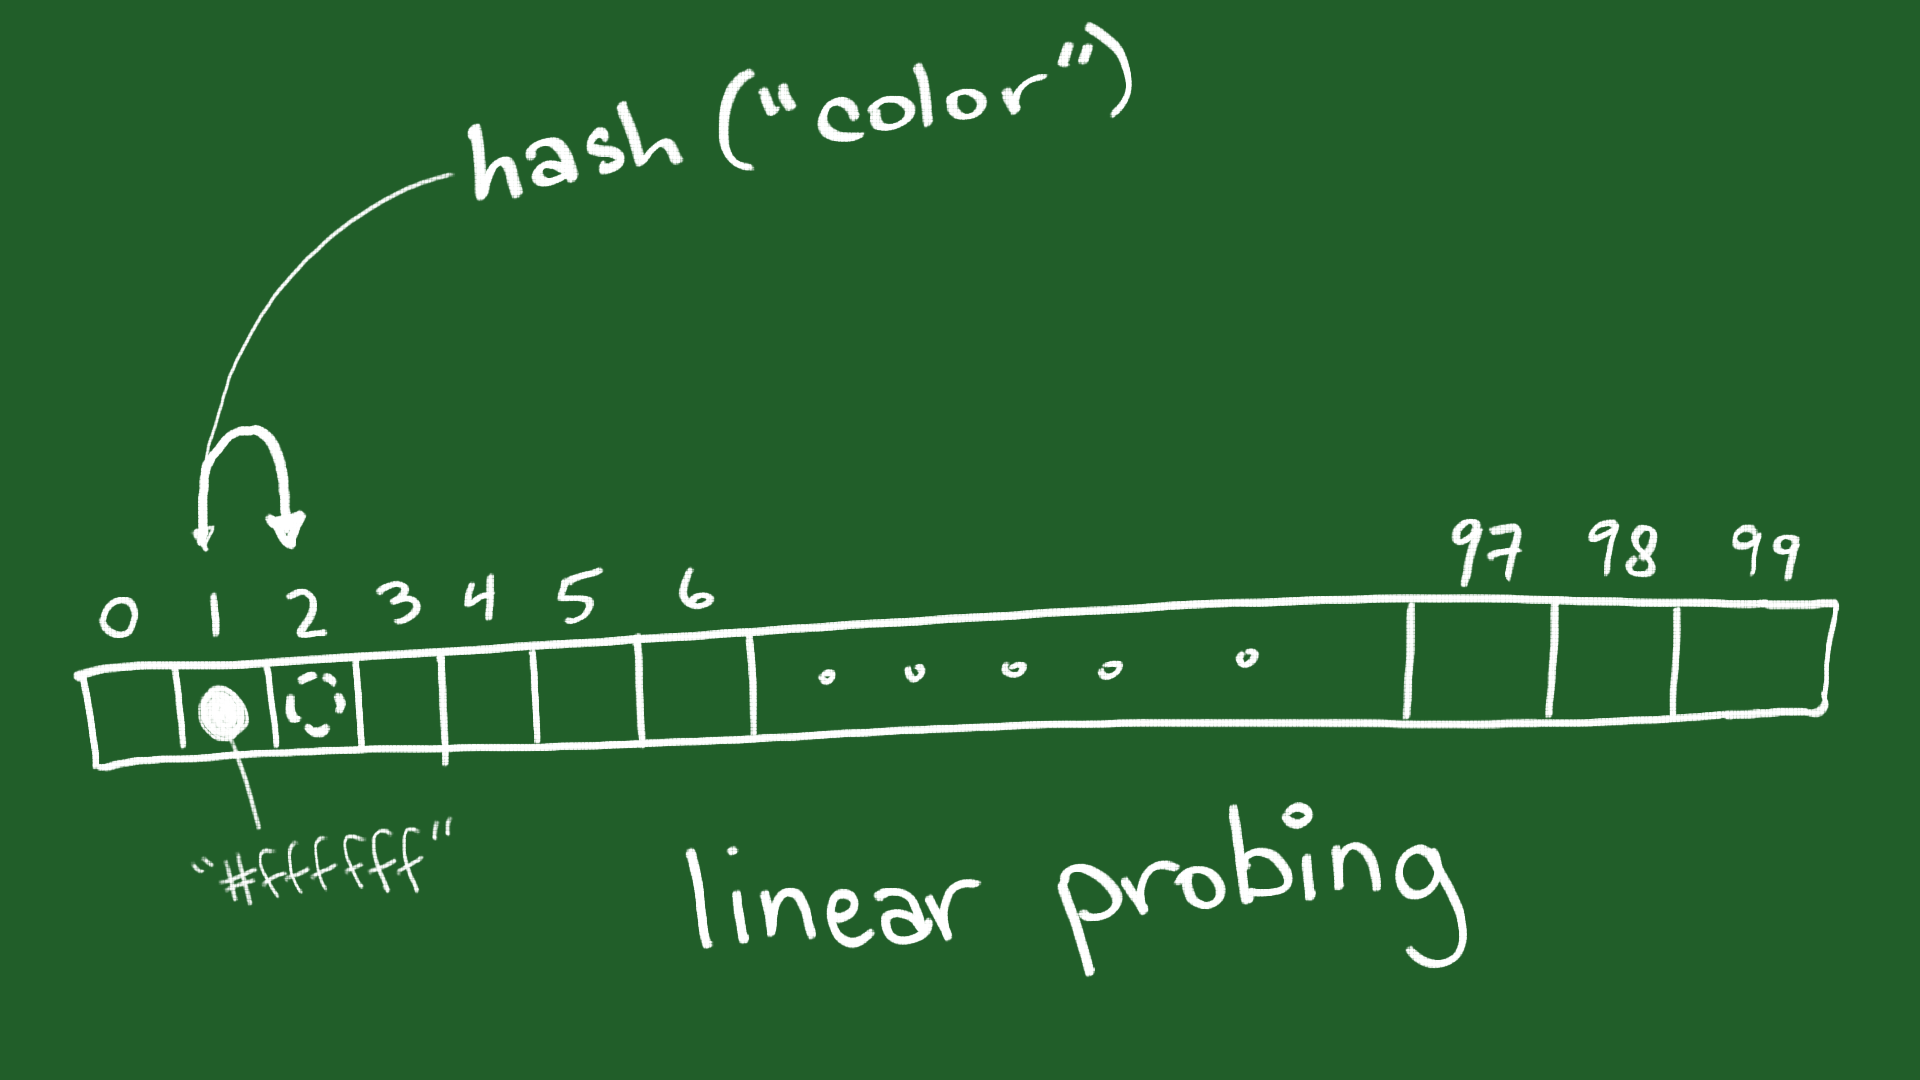 hash ("color")
0 1 2 3 4 5 6 97 98 99
"#ffffff"
linear probing